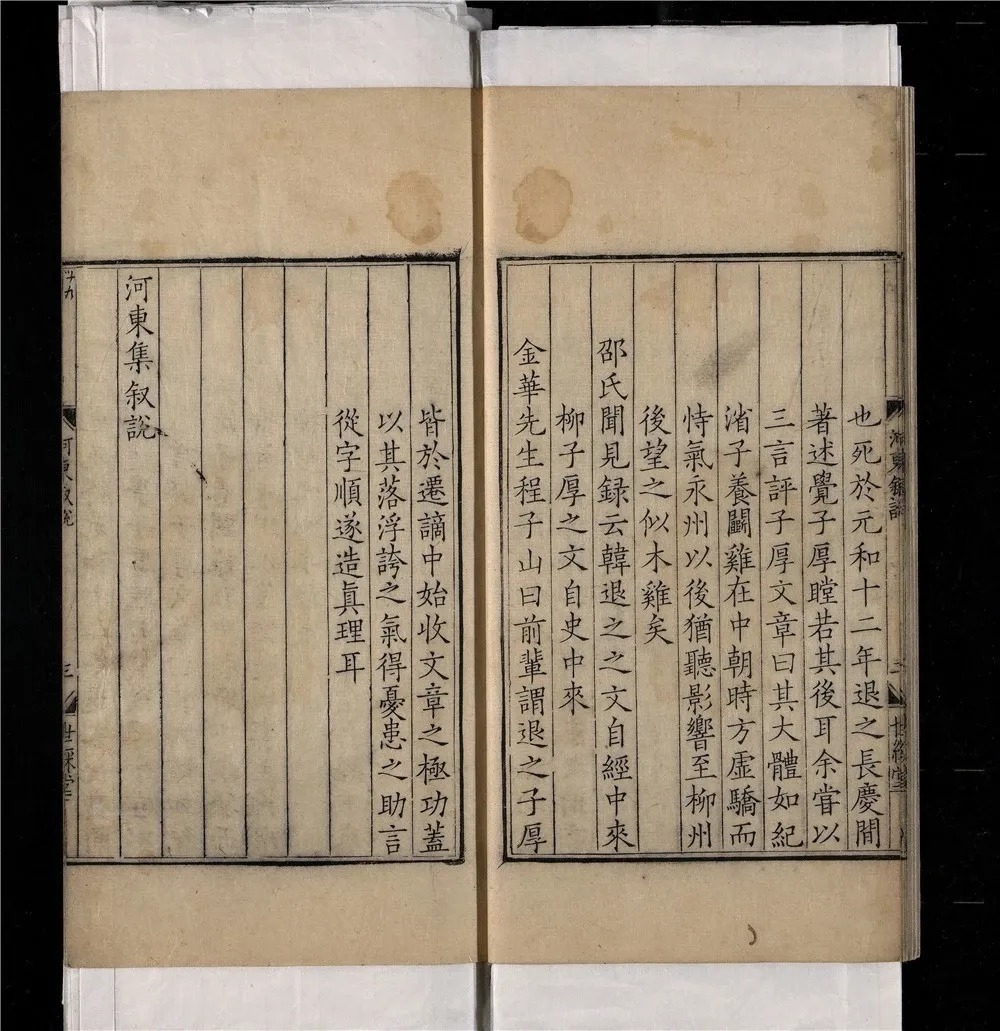 也死於元和十二年退之長慶間
著述覺子厚瞠若其後耳余嘗以
三言評子厚文章曰其大體如紀
渻子養鬭雞在中朝時方虛驕而
恃氣永州以後猶聽影響至柳州
後望之似木雞矣
邵氏聞見録云韓退之之文自經中來
柳子厚之文自史中來
金華先生程子山曰前輩謂退之子厚
皆於遷謫中始收文章之極功蓋
以其落浮誇之氣得憂患之助言
從字順遂造眞理耳
河東集叙說
河東叙說
三
世綵堂